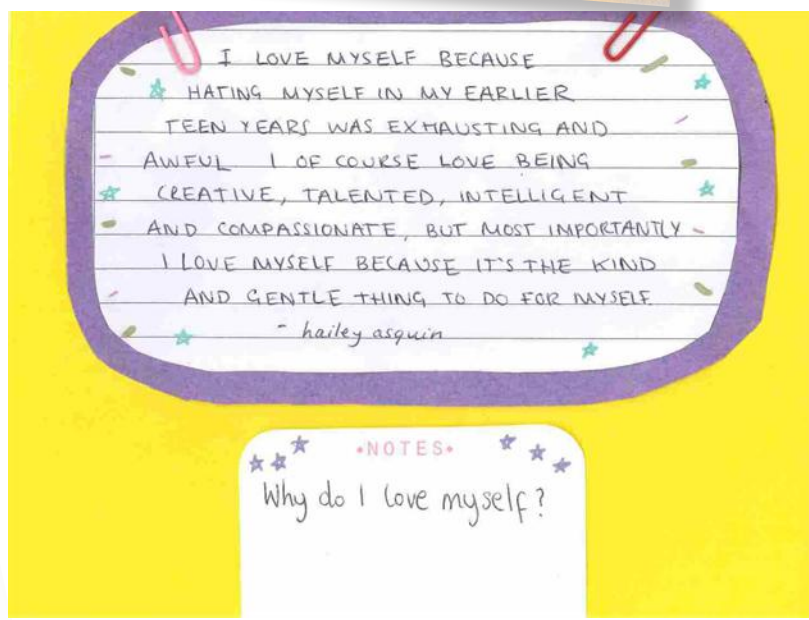 I LOVE MYSELF BECAUSE
HATING MYSELF IN MY EARLIER
TEEN YEARS WAS EXHAUSTING AND
AWFUL I OF COURSE LOVE BEING
CREATIVE, TALENTED, INTELLIGENT
AND COMPASSIONATE, BUT MOST IMPORTANTLY
I LOVE MYSELF BECAUSE IT'S THE KIND
AND GENTLE THING TO DO FOR MYSELF.
- hailey asquin
•NOTES•
Why do I love myself?